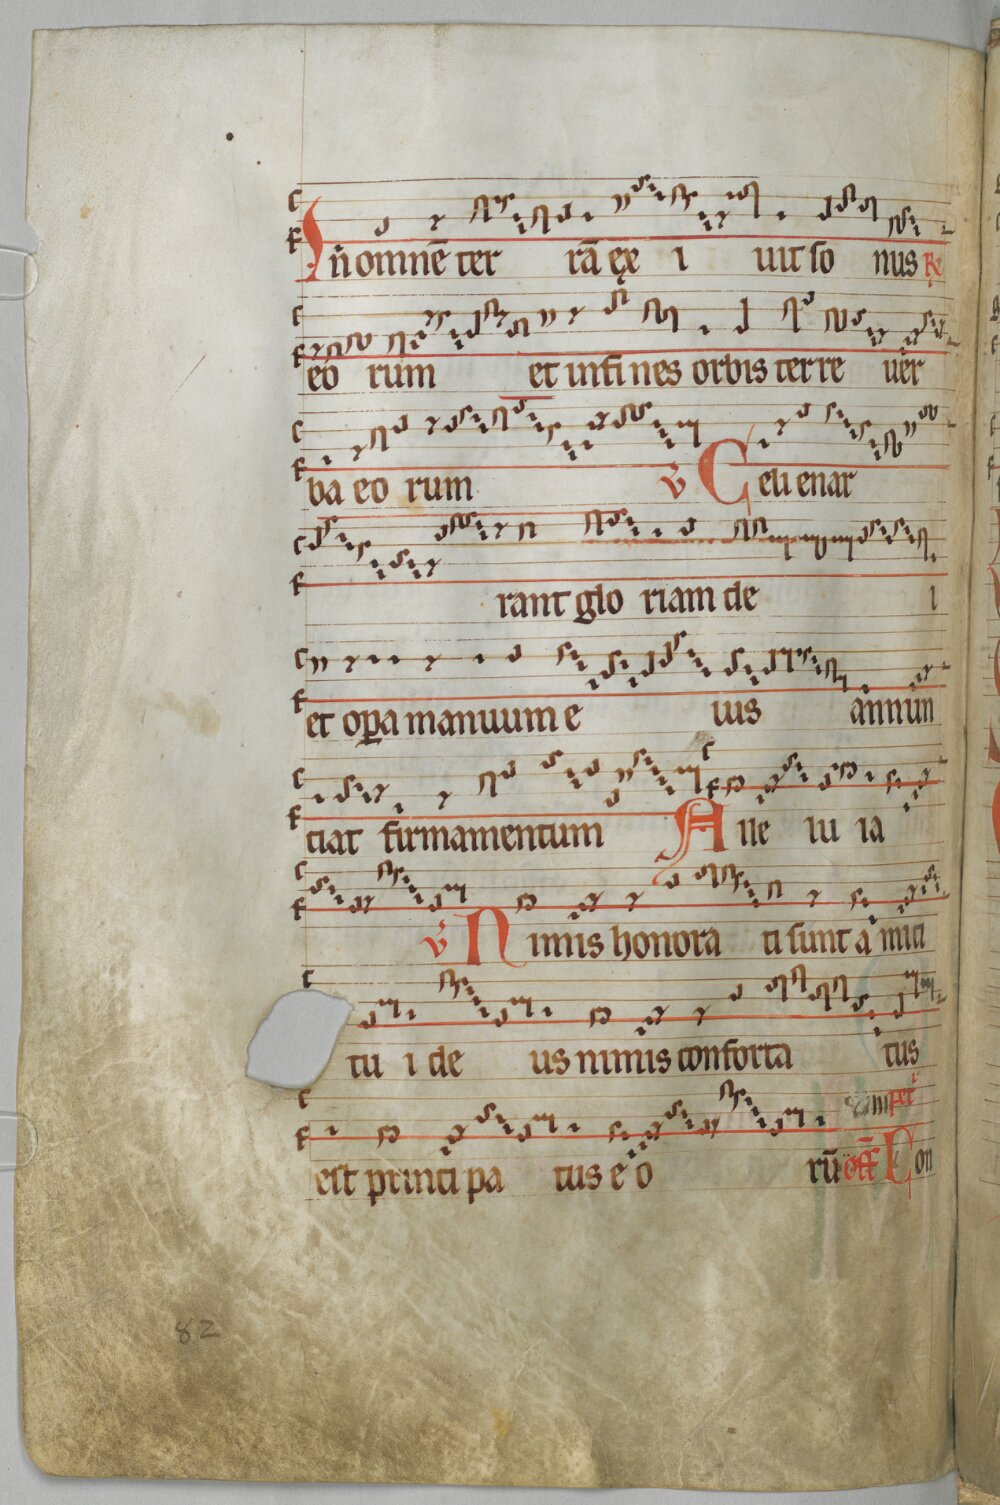 In̄ omnē ter rā ęxe i uit so nus Re
eo rum et in fi nes orbis terre uer
ba eo rum v Celi enar
rant glo riam de i
et opa manuum e ius annun
tiat firmamentum A lle lu ia
v Nimis honora ti sunt a mici
tu i de us nimis conforta tus
est princi pa tus e o rū off Con
82